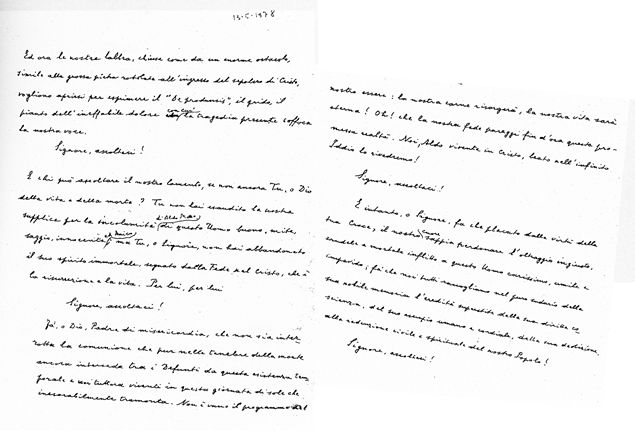 13-5-1978
Ed ora le nostre labbra, chiuse come da un enorme ostacolo,
simile alla grossa pietra rotolata all'ingresso del sepolcro di Cristo,
vogliono aprirsi per esprimere il "De profundis", il grido, il
con cui
pianto dell'ineffabile dolore la tragedia presente soffoca
la nostra voce.
Signore, ascoltaci!
E chi può ascoltare il nostro lamento, se non ancora Tu, o Dio
della vita e della morte? Tu non hai esaudito la nostra
di Aldo Moro
supplica per la incolumità di questo Uomo buono, mite,
saggio, innocente ed amico; ma Tu, o Signore, non hai abbandonato
il suo spirito immortale, segnato dalla Fede nel Cristo, che è
la risurrezione e la vita. Per lui, per lui
Signore, ascoltaci!
Fa, o Dio, Padre di misericordia, che non sia inter
rotta la comunione che pur nelle tenebre della morte
ancora intercede tra i Defunti da questa esistenza tem
porale e noi tuttora viventi in questa giornata di sole che
inesorabilmente tramonta. Non è vano il programma del
nostro essere: la nostra carne risorgerà, la nostra vita sarà
eterna! Oh! che la nostra fede pareggi fin d'ora questa pro-
messa realtà. Noi, Aldo vivente in Cristo, beato nell'infinito
Iddio lo rivedremo!
Signore, ascoltaci!
E intanto, o Signore, fa che placato dalla virtù della
tua Croce, il nostro cuore sappia perdonare l'oltraggio ingiusto,
crudele e mortale inflitto a questo Uomo carissimo, umile e
impavido; fa che noi tutti raccogliamo nel puro sudario della
sua nobile memoria l'eredità superstite della sua diritta co
scienza, del suo esempio umano e cordiale, della sua dedizione
alla redenzione civile e spirituale del nostro Popolo!
Signore, ascoltaci!